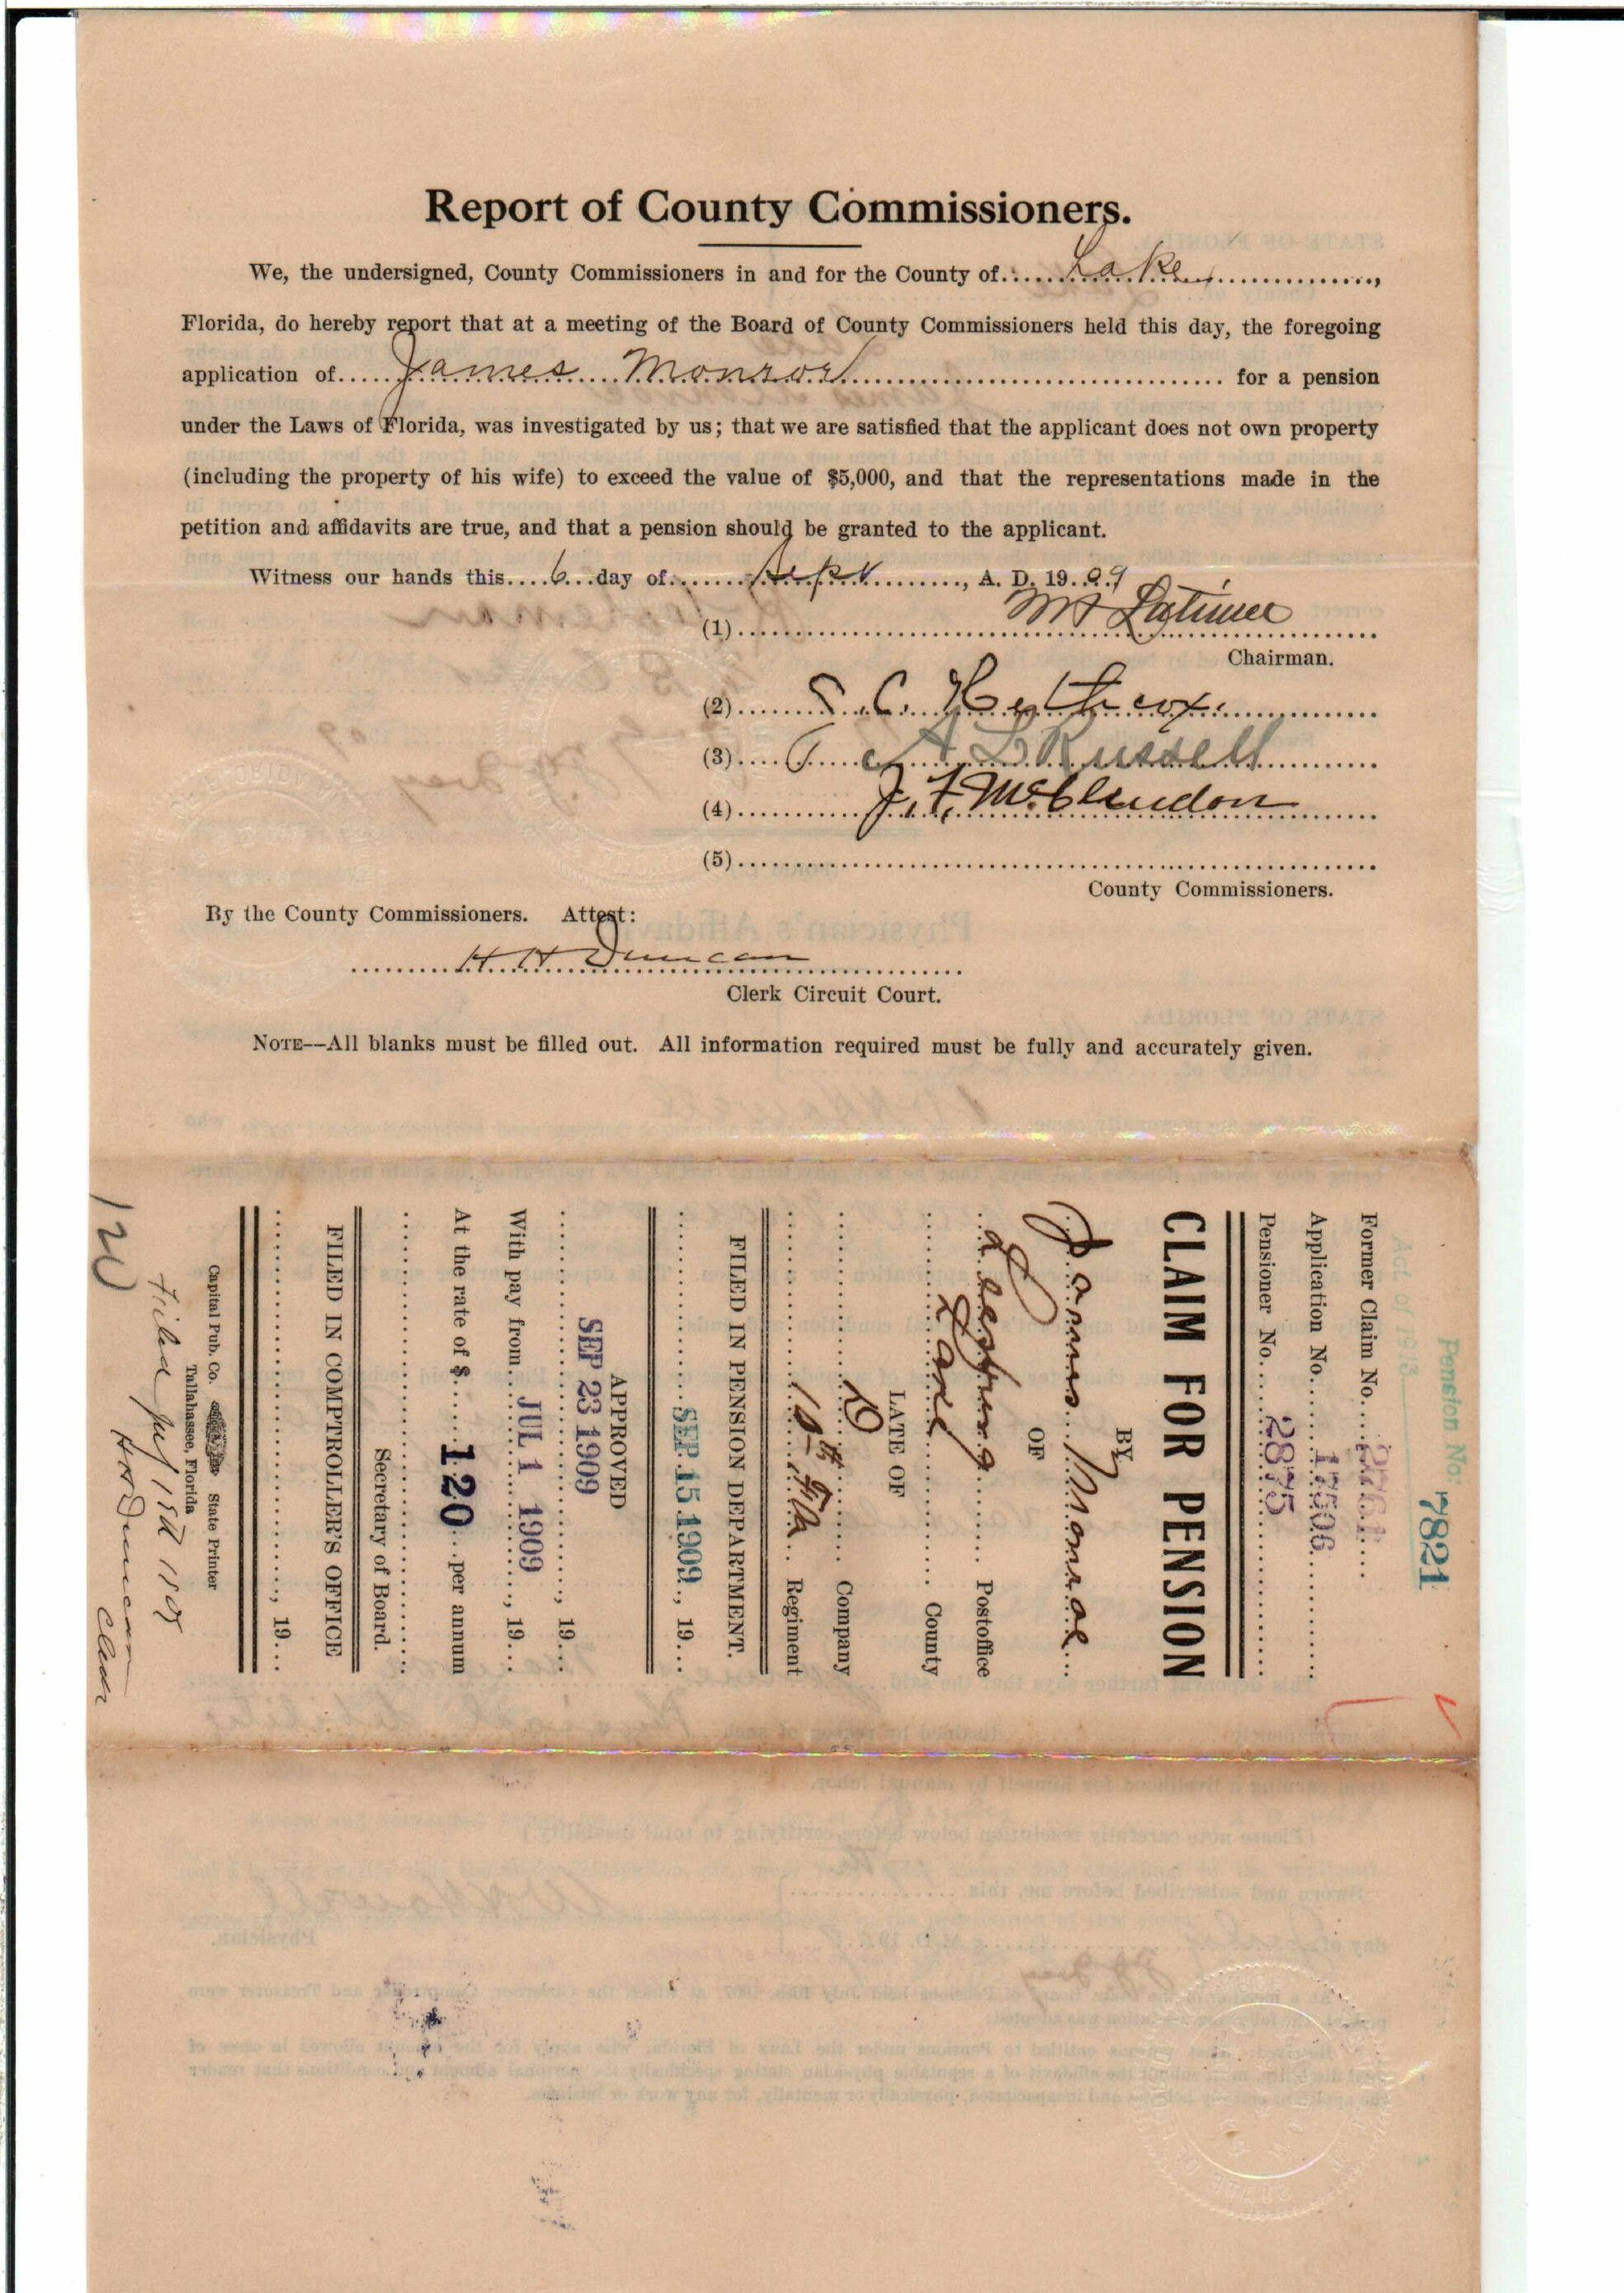 Report of County Commissioners.
We, the undersigned, County Commissioners in and for the County of Lake,
Florida, do hereby report that at a meeting of the Board of County Commissioners held this day, the foregoing
application of James Monroe for a pension
under the Laws of Florida, was investigated by us; that we are satisfied that the applicant does not own property
(including the property of his wife) to exceed the value of $5,000, and that the representations made in the
petition and affidavits are true, and that a pension should be granted to the applicant.
Witness our hands this 6 day of Sept, A. D. 1909
(1) Latimer
Chairman.
(2) S. C.
(3) A L Russell
(4) J. F. McClendon
(5)
County Commissioners.
By the County Commissioners. Attest:
H H Duncan
Clerk Circuit Court.
NOTE—All blanks must be filled out. All information required must be fully and accurately given.
Pension No. 7821
Act of 1913
Former Claim No.
Application No. 17506
Pensioner No. 2875
CLAIM FOR PENSION
BY
James Monroe
OF
Leesburg Postoffice
Lake County
LATE OF
Company
10th Fla Regiment
FILED IN PENSION DEPARTMENT.
SEP 15 1909, 19
APPROVED
SEP 23 1909, 19
With pay from JUL 1 1909, 19
At the rate of $ 120 per annum
Secretary of Board.
FILED IN COMPTROLLER'S OFFICE
, 19
Capital Pub. Co. State Printer
Tallahassee, Florida
Filed July
H H Duncan
Clerk